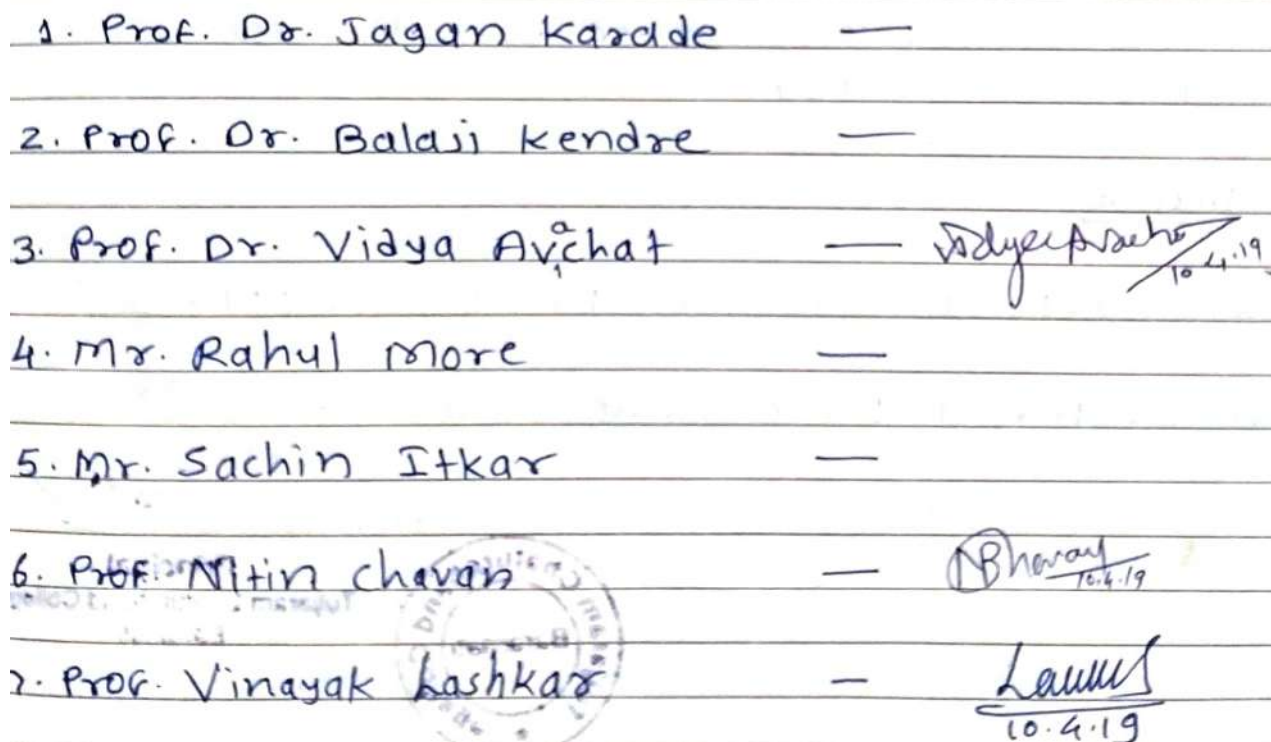 1. Prof. Dr. Jagan Karade —
2. Prof. Dr. Balaji Kendre —
3. Prof. Dr. Vidya Avachat — 10.4.19
4. Mr. Rahul More —
5. Mr. Sachin Itkar —
6. Prof. Nitin Chavan — 10.4.19
7. Prof. Vinayak Lashkar — 10.4.19